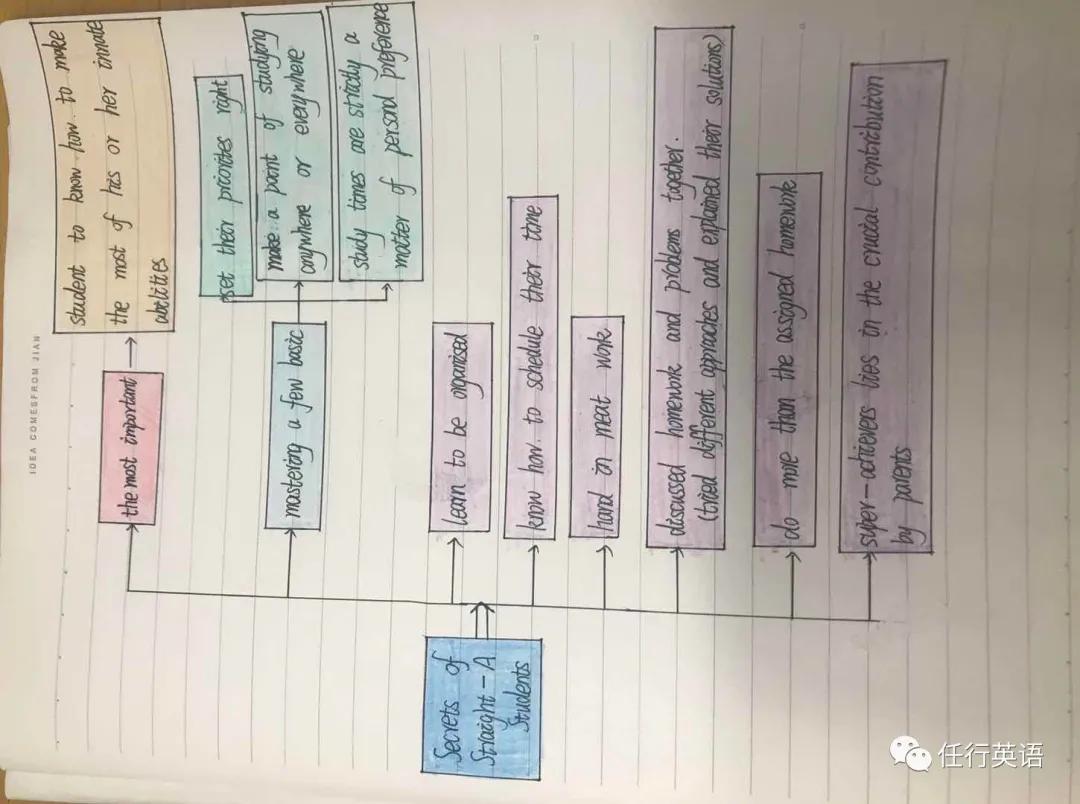 IDEA COMESFROM JIAN
Secrets of
Straight-A
Students
the most important
student to know how to make
the most of his or her innate
abilities
mastering a few basic
set their priorites right
make a point of studying
anywhere or everywhere
study times are strictly a
matter of personal preference
learn to be organised
know how to schedule their time
hand in meat work
discussed homework and problems together.
(tried different approaches and explained their solutions)
do more than the assigned homework
super-achievers lies in the crucial contribution
by parents
任行英语